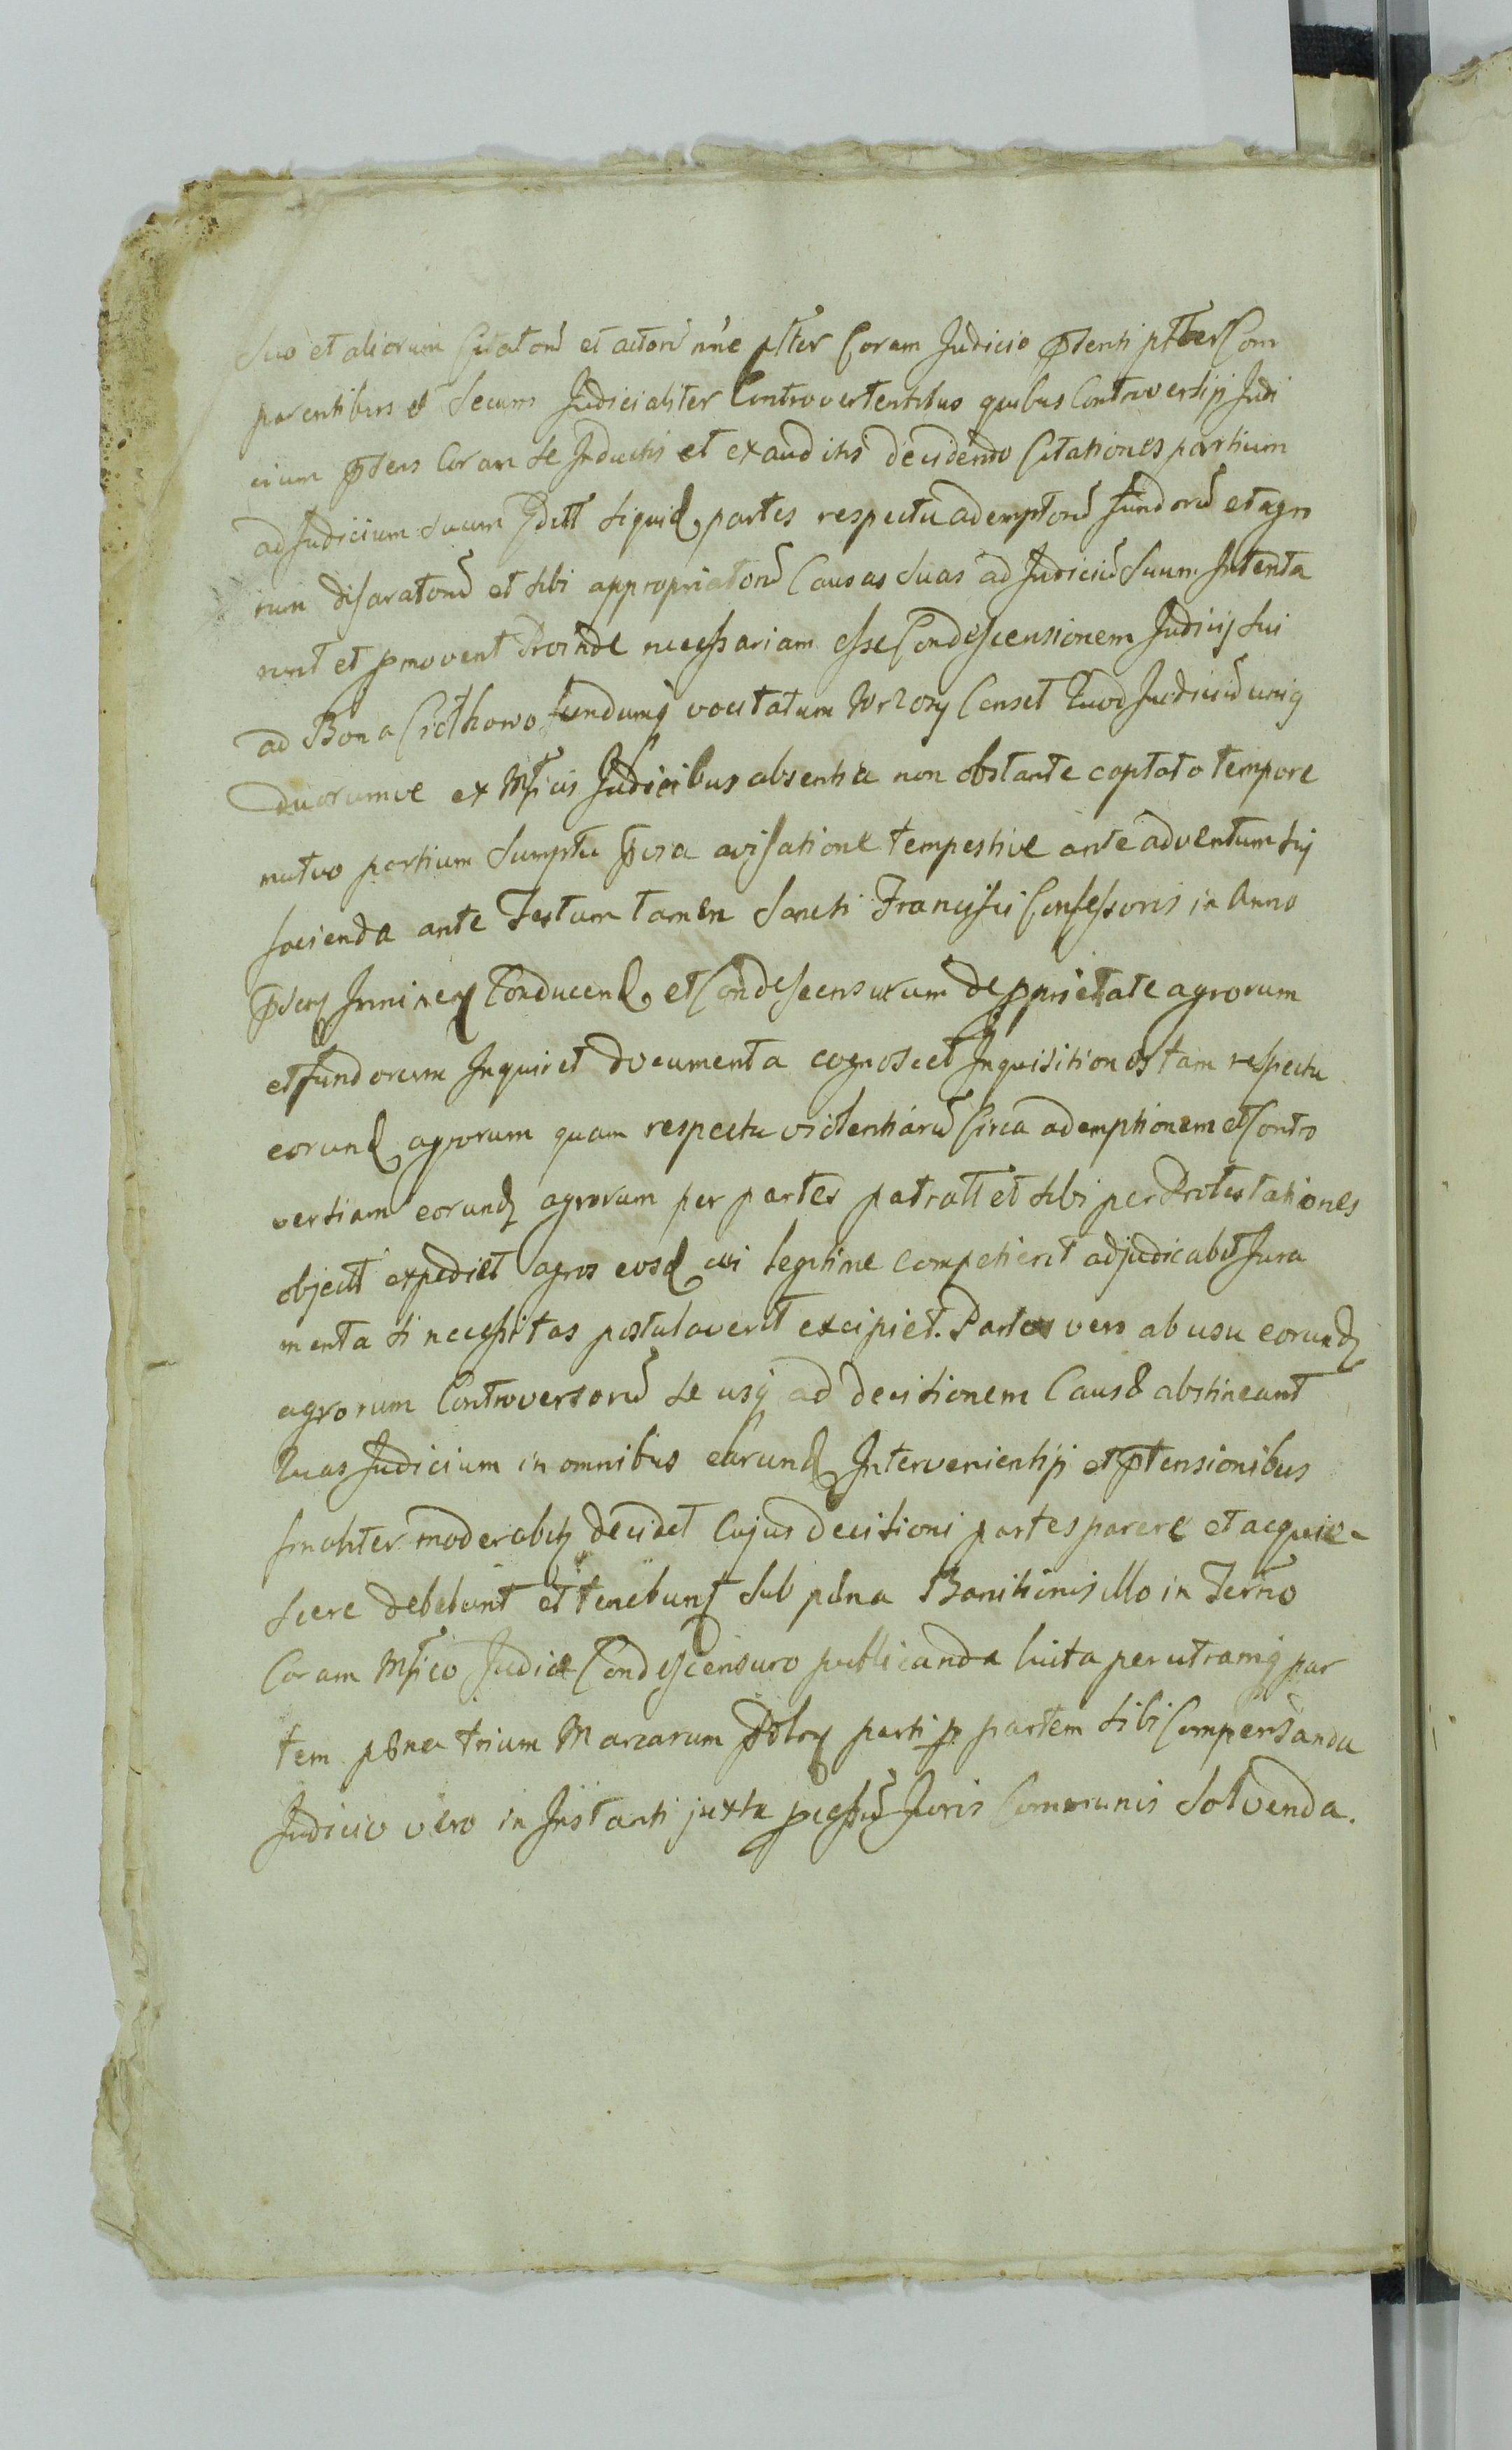 Suo et aliorum Citatorũ et actorũ nñe pltĕr Coram Judicio pñsenti pltĕr Com
parentibus et Secum Judicialiter Controvertentibus quibus Controversijs Judi
cium pñsens Coram se Inductis et exauditis decidendo Citationes partium
ad Judicium Suum siquid, partes respectu ademptorũ fundorũ et agro
rum disaratorũ et sibi appropriatorũ Causas Suas ad Judiciũ Suum Intenta
runt et pmovent Proinde necessariam esse Condescensionem Judicij Sui
ad Bona Ciołkowo fundumq vocitatum Wrzosy Censet Quod Judiciũ unig
duorumve ex Mficis Judicibus absentia non obstante captato tempore
mutuo partium Sumptu pvia avisatione tempestive ante adventum Sij
facienda ante Festum tamen Sancti Francisci Confessoris in Anno
pñsen Conducend, et Condescensurum de pprietate agrorum
et fundorum Inquiret documenta cognoscet Inquisitiones tam respectu
eorund, agrorum quam respectu violentiarũ Circa ademptionem et Contro
versiam eorund agrorum per partes patratt et Sibi per Protestationes
objectt expediet agros eosd cui legitime competierit adjudicabit Jura
menta si necessitas postulaverit excipiet. Partes vero ab usu eorund
agrorum Controversorũ se usq ad decisionem Causæ abstineant
Quas Judicium in omnibus earund Intervenientijs et ptensionibus
finaliter moderabit decidet Cujus decisioni partes parere et acquie-
scere debebunt et tenebunt Sub pæna Banitionis illo in Termo
Coram Mfico Judice Condescensuro publicanda luita per utramq par
tem pæna trium Marcarum parti p partem Sibi Compensanda
Judicio vero in Instanti juxta Juris Communis Solvenda.